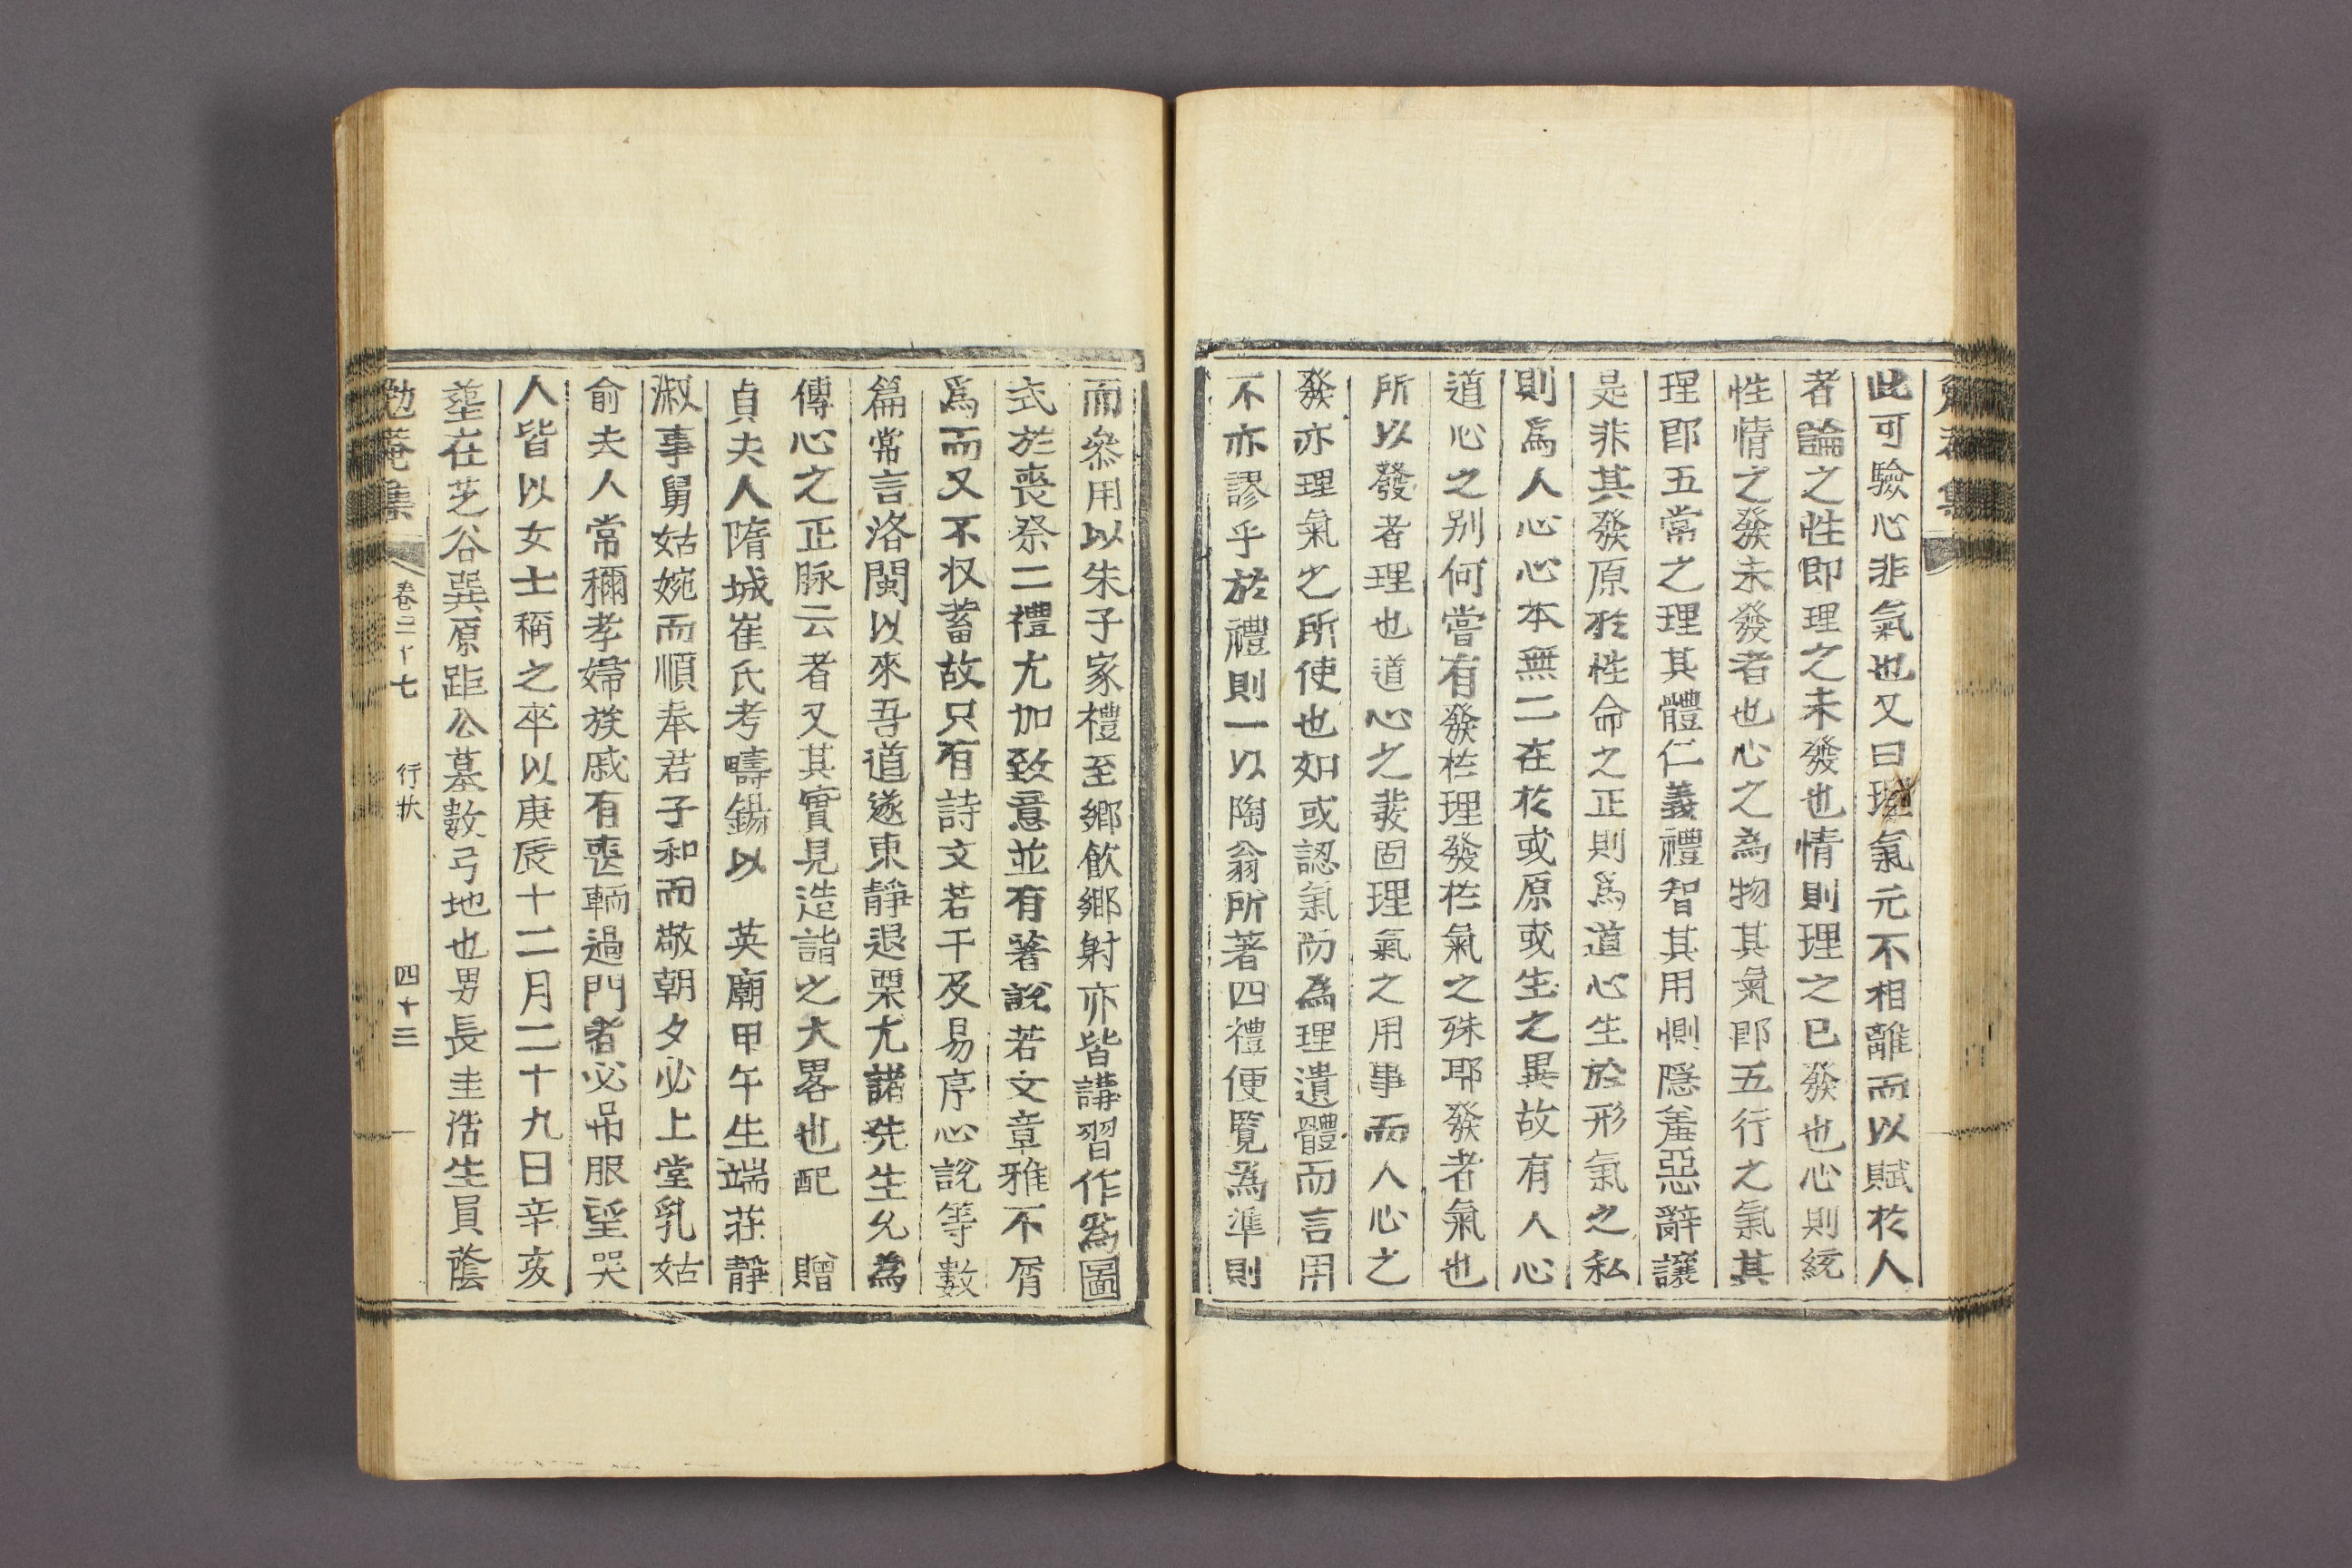 此可驗心非氣也又曰理氣元不相離而以賦於人
者論之性即理之未發也情則理之已發也心則統
性情之發未發者也心之為物其氣卽五行之氣其
理卽五常之理其體仁義禮智其用惻隱羞惡辭讓
是非其發原於性命之正則爲道心生於形氣之私
則爲人心心本無二在於或原或生之異故有人心
道心之別何嘗有發於理發於氣之殊耶發者氣也
所以發者理也道心之發固理氣之用事而人心之
發亦理氣之所使也如或認氣而為理遺體而言用
不亦謬乎於禮則一以陶翁所著四禮便覽為準則
而叅用以朱子家禮至鄉飮鄉射亦皆講習作爲圖
式於喪祭二禮尤加致意並有著說若文章雅不屑
爲而又不收蓄故只有詩文若干及易序心說等數
篇常言洛閩以來吾道遂東靜退栗尤諸先生允為
傳心之正脉云者又其實見造詣之大畧也配 贈
貞夫人隋城崔氏考疇錫以 英廟甲午生端莊靜
淑事舅姑婉而順奉君子和而敬朝夕必上堂乳姑
俞夫人常稱孝婦族戚有喪輀過門者必吊服望哭
人皆以女士稱之卒以庚辰十二月二十九日辛亥
葬在芝谷巽原距公墓數弓地也男長圭浩生員蔭
勉菴集 卷二十七 行狀 四十三